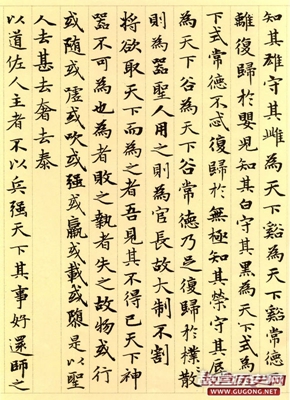 知其雄守其雌為天下谿為天下谿常德不
離復歸於嬰兒知其白守其黑為天下式為天
下式常德不忒復歸於無極知其榮守其辱
為天下谷為天下谷常德乃足復歸於樸散
則為器聖人用之則為官長故大制不割
將欲取天下而為之者吾見其不得已天下神
器不可為也為者敗之執者失之故物或行
或隨或噓或吹或强或羸或載或隳是以聖
人去甚去奢去泰
以道佐人主者不以兵强天下其事好還師之